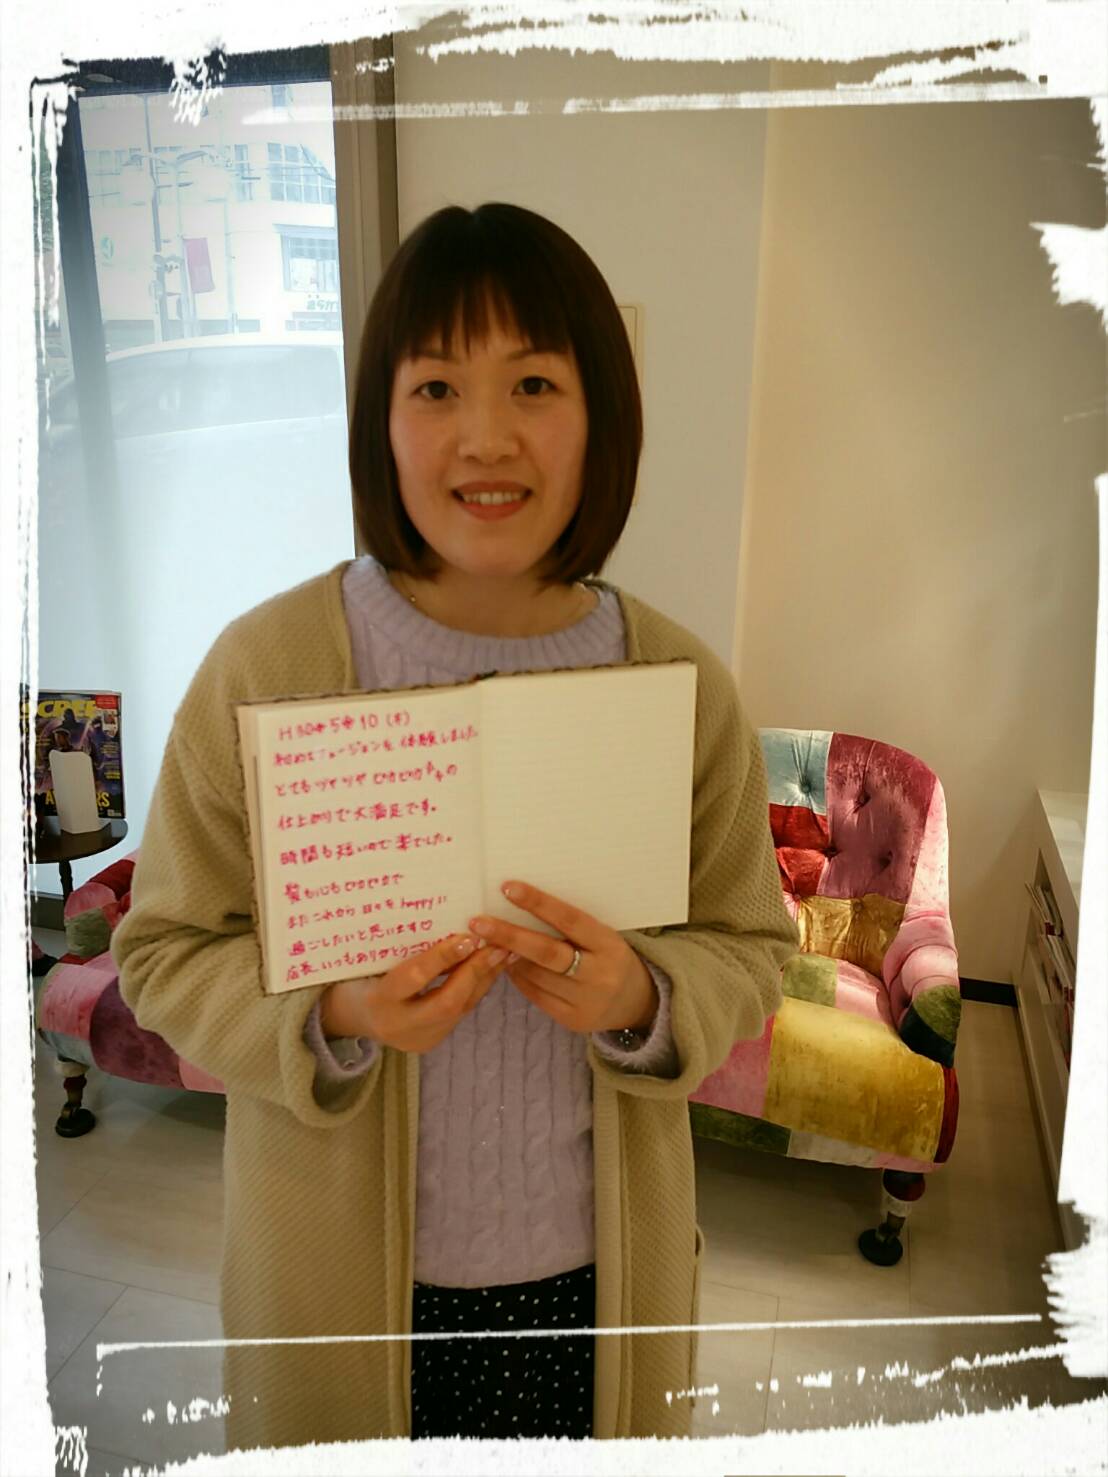 H30年5年10(木)
初めてフュージョンを体験しました
とてもツヤツヤ ピカピカの
仕上がりで大満足です。
時間も短いので楽でした。
髪も心もピカピカで
またこれから日々をhappyに
過ごしたいと思います♡
店長、いつもありがとうござい
SCREE